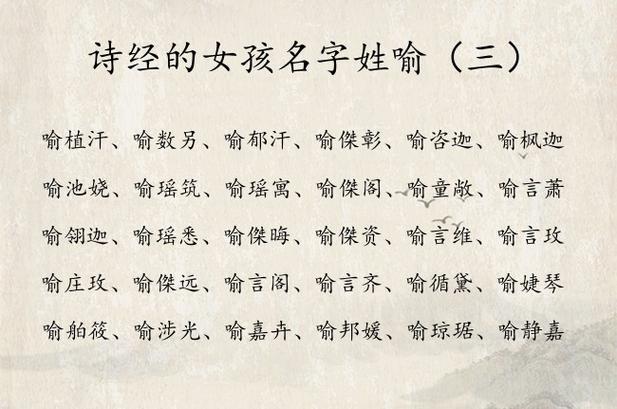 诗经的女孩名字姓喻（三）
喻植汗、喻数另、喻郁汗、喻傑彰、喻咨迦、喻枫迦
喻池娆、喻瑶筑、喻瑶寓、喻傑阁、喻童敞、喻言萧
喻翎迦、喻瑶悉、喻傑晦、喻傑资、喻言维、喻言玫
喻庄玫、喻傑远、喻言阁、喻言齐、喻循黛、喻婕琴
喻舶筱、喻涉光、喻嘉卉、喻邦媛、喻琼琚、喻静嘉